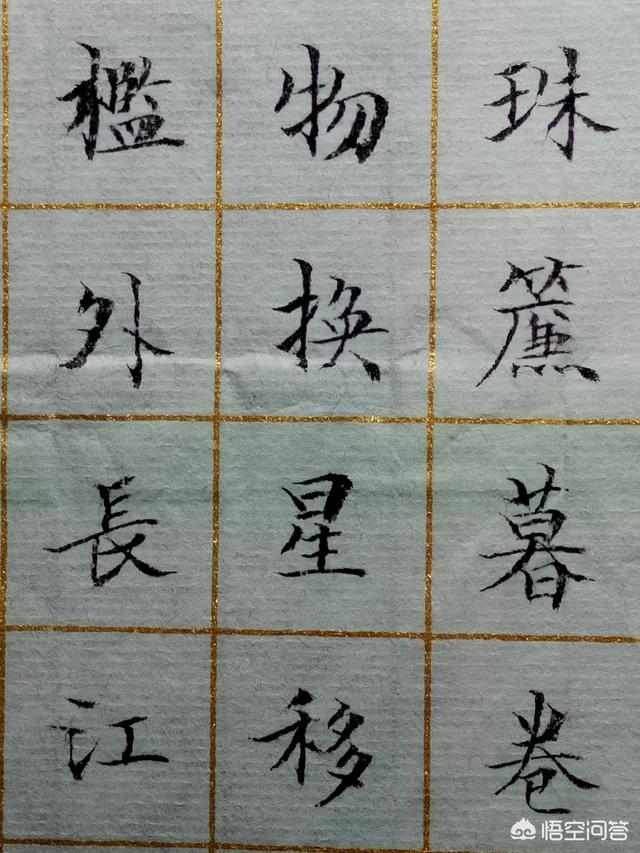 珠簾暮卷
物換星移
檻外長江
悟空问答